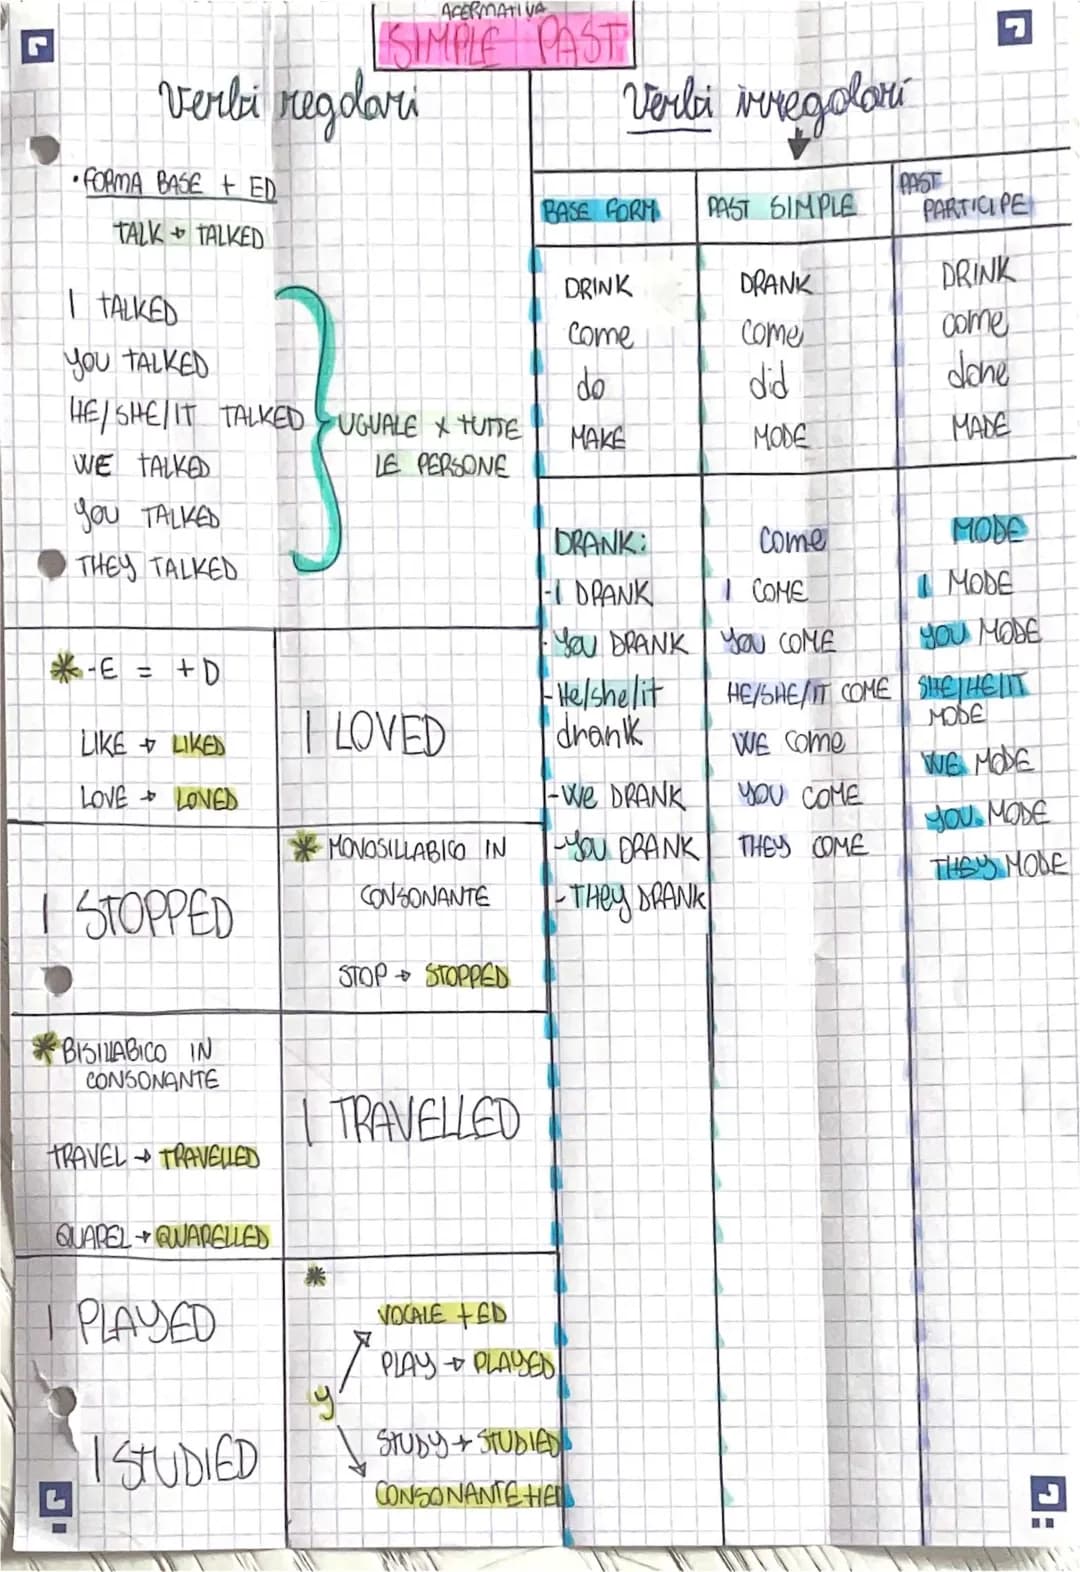 AFERMATIVA
SIMPLE PAST
Verbi regolari
• FORMA BASE + ED
TALK → TALKED
I TALKED
YOU TALKED
HE/SHE/IT TALKED
WE TALKED
YOU TALKED
THEY TALKED
UGUALE X TUTTE
LE PERSONE
* -E = +D
LIKE → LIKED
LOVE → LOVED
I LOVED
I STOPPED
* MONOSILLABICO IN
CONSONANTE
STOP → STOPPED
* BISILLABICO IN
CONSONANTE
TRAVEL → TRAVELLED
QUAREL → QUARELLED
I TRAVELLED
I PLAYED
I STUDIED
*
VOCALE + ED
PLAY → PLAYED
y
STUDY → STUDIED
CONSONANTE + IED
Verbi irregolari
BASE FORM
PAST SIMPLE
PAST
PARTICIPE
DRINK DRANK DRINK
come come come
do did done
MAKE MODE MADE
DRANK:
- I DRANK
- You DRANK
- He/she/it
drank
- We DRANK
- YOU DRANK
- THEY DRANK
come
I COME
YOU COME
HE/SHE/IT COME
WE come
YOU COME
THEY COME
MODE
I MODE
YOU MODE
SHE/HE/IT
MODE
WE MODE
YOU MODE
THEY MODE